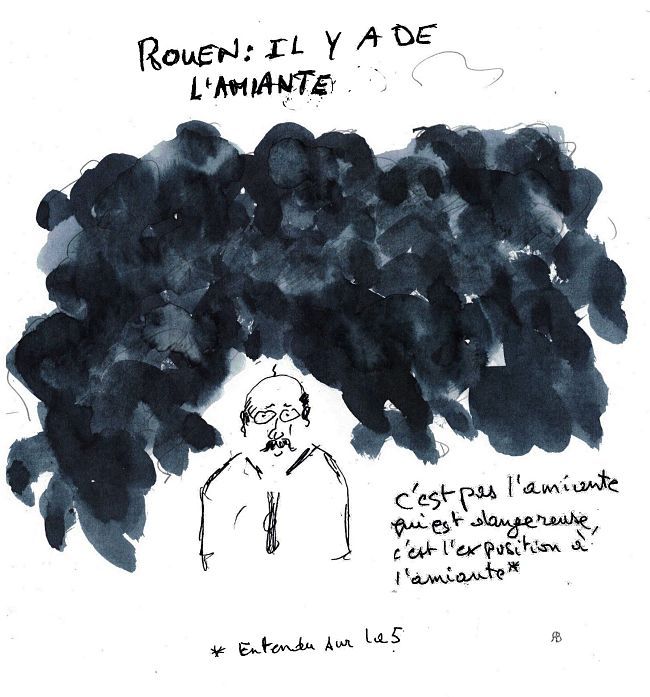 ROUEN: IL Y A DE
L'AMIANTE
c'est pas l'amiante
qui est dangereuse,
c'est l'exposition à
l'amiante*
* Entendu sur la 5
AB